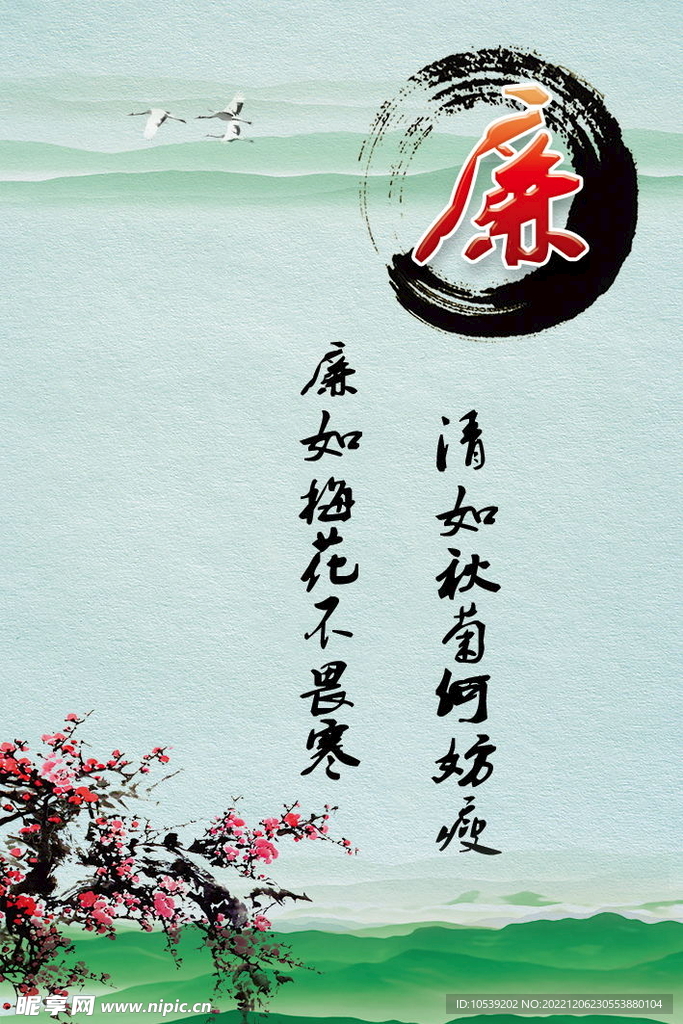 廉
清如秋菊何妨瘦
廉如梅花不畏寒
昵享网 www.nipic.cn
ID:10539202 NO:20221206230553880104